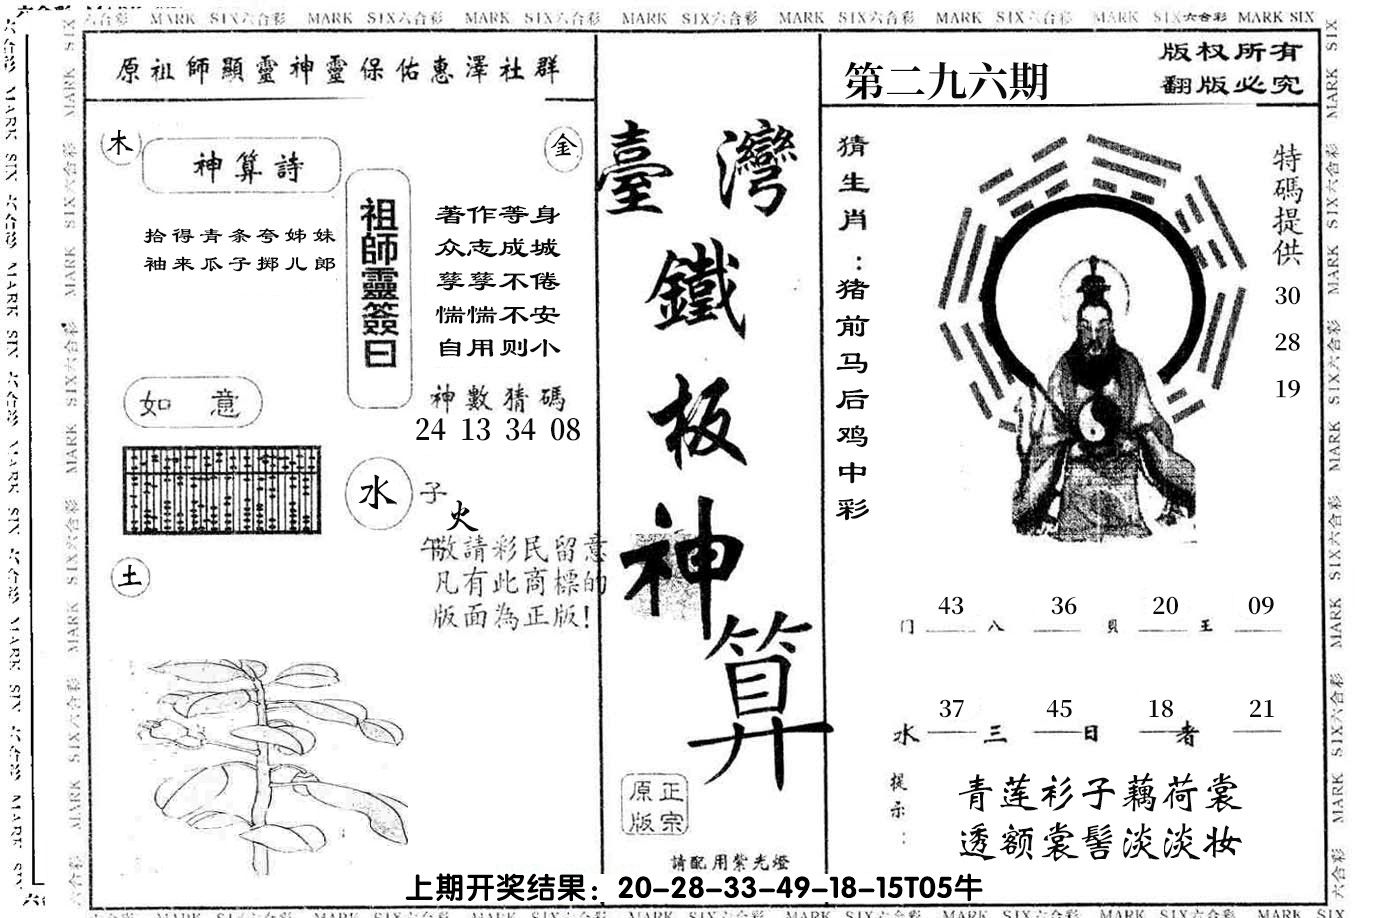 六合彩 MARK SIX六合彩 MARK SIX六合彩 MARK SIX六合彩 MARK SIX六合彩 MARK SIX六合彩 MARK SIX六合彩 MARK SIX六合彩 MARK SIX
原祖師顯靈神靈保佑惠澤社群
木
金
神算詩
拾得青条夸姊妹
袖来瓜子掷儿郎
祖師靈簽曰
著作等身
众志成城
孳孳不倦
惴惴不安
自用则小
神數猜碼
24 13 34 08
如 意
水
子
火
午
土
敬請彩民留意
凡有此商標的
版面為正版!
臺灣
鐵
板
神
算
正宗
原版
請配用紫光燈
第二九六期
版权所有
翻版必究
猜生肖:猪前马后鸡中彩
特碼提供
30
28
19
43 36 20 09
门 八 貝 王
37 45 18 21
水 三 日 者
提示:
青莲衫子藕荷裳
透额裳髻淡淡妆
上期开奖结果：20-28-33-49-18-15T05牛